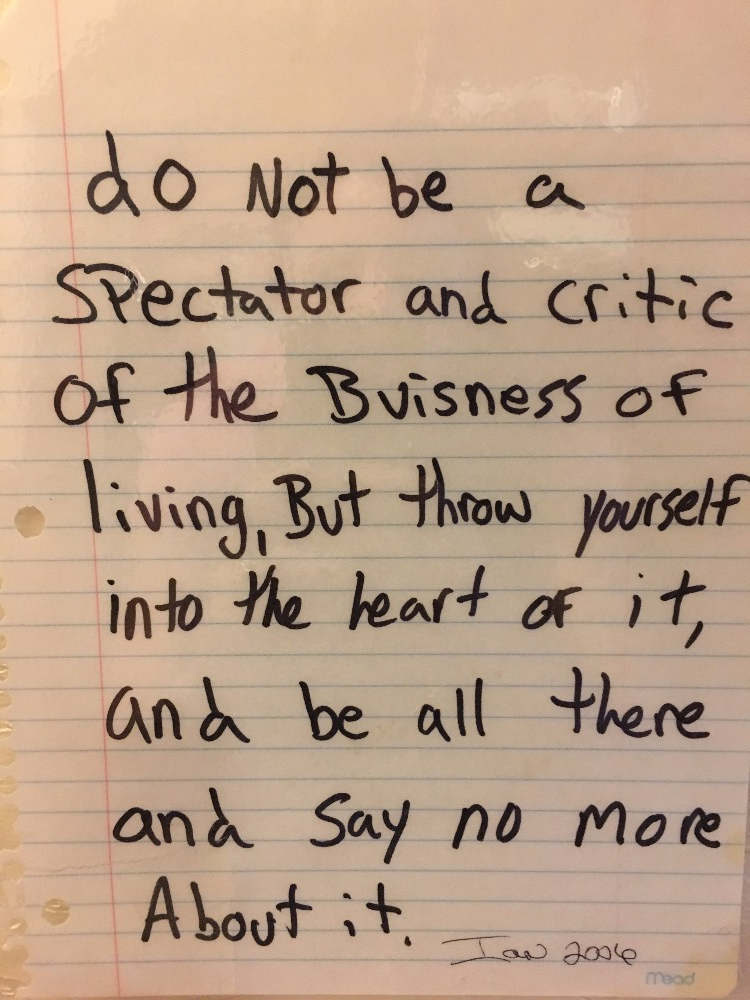 do Not be a
Spectator and critic
of the Buisness of
living, But throw yourself
into the heart of it,
and be all there
and Say no more
About it.
Ian 2006
Mead